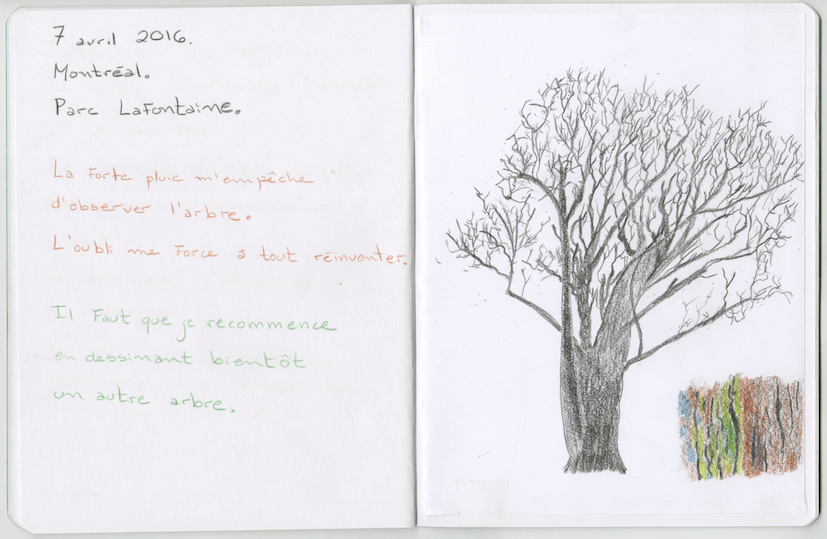 7 avril 2016.
Montréal.
Parc LaFontaine.
La forte pluie m'empêche
d'observer l'arbre.
L'oubli me force à tout réinventer.
Il faut que je recommence
en dessinant bientôt
un autre arbre.